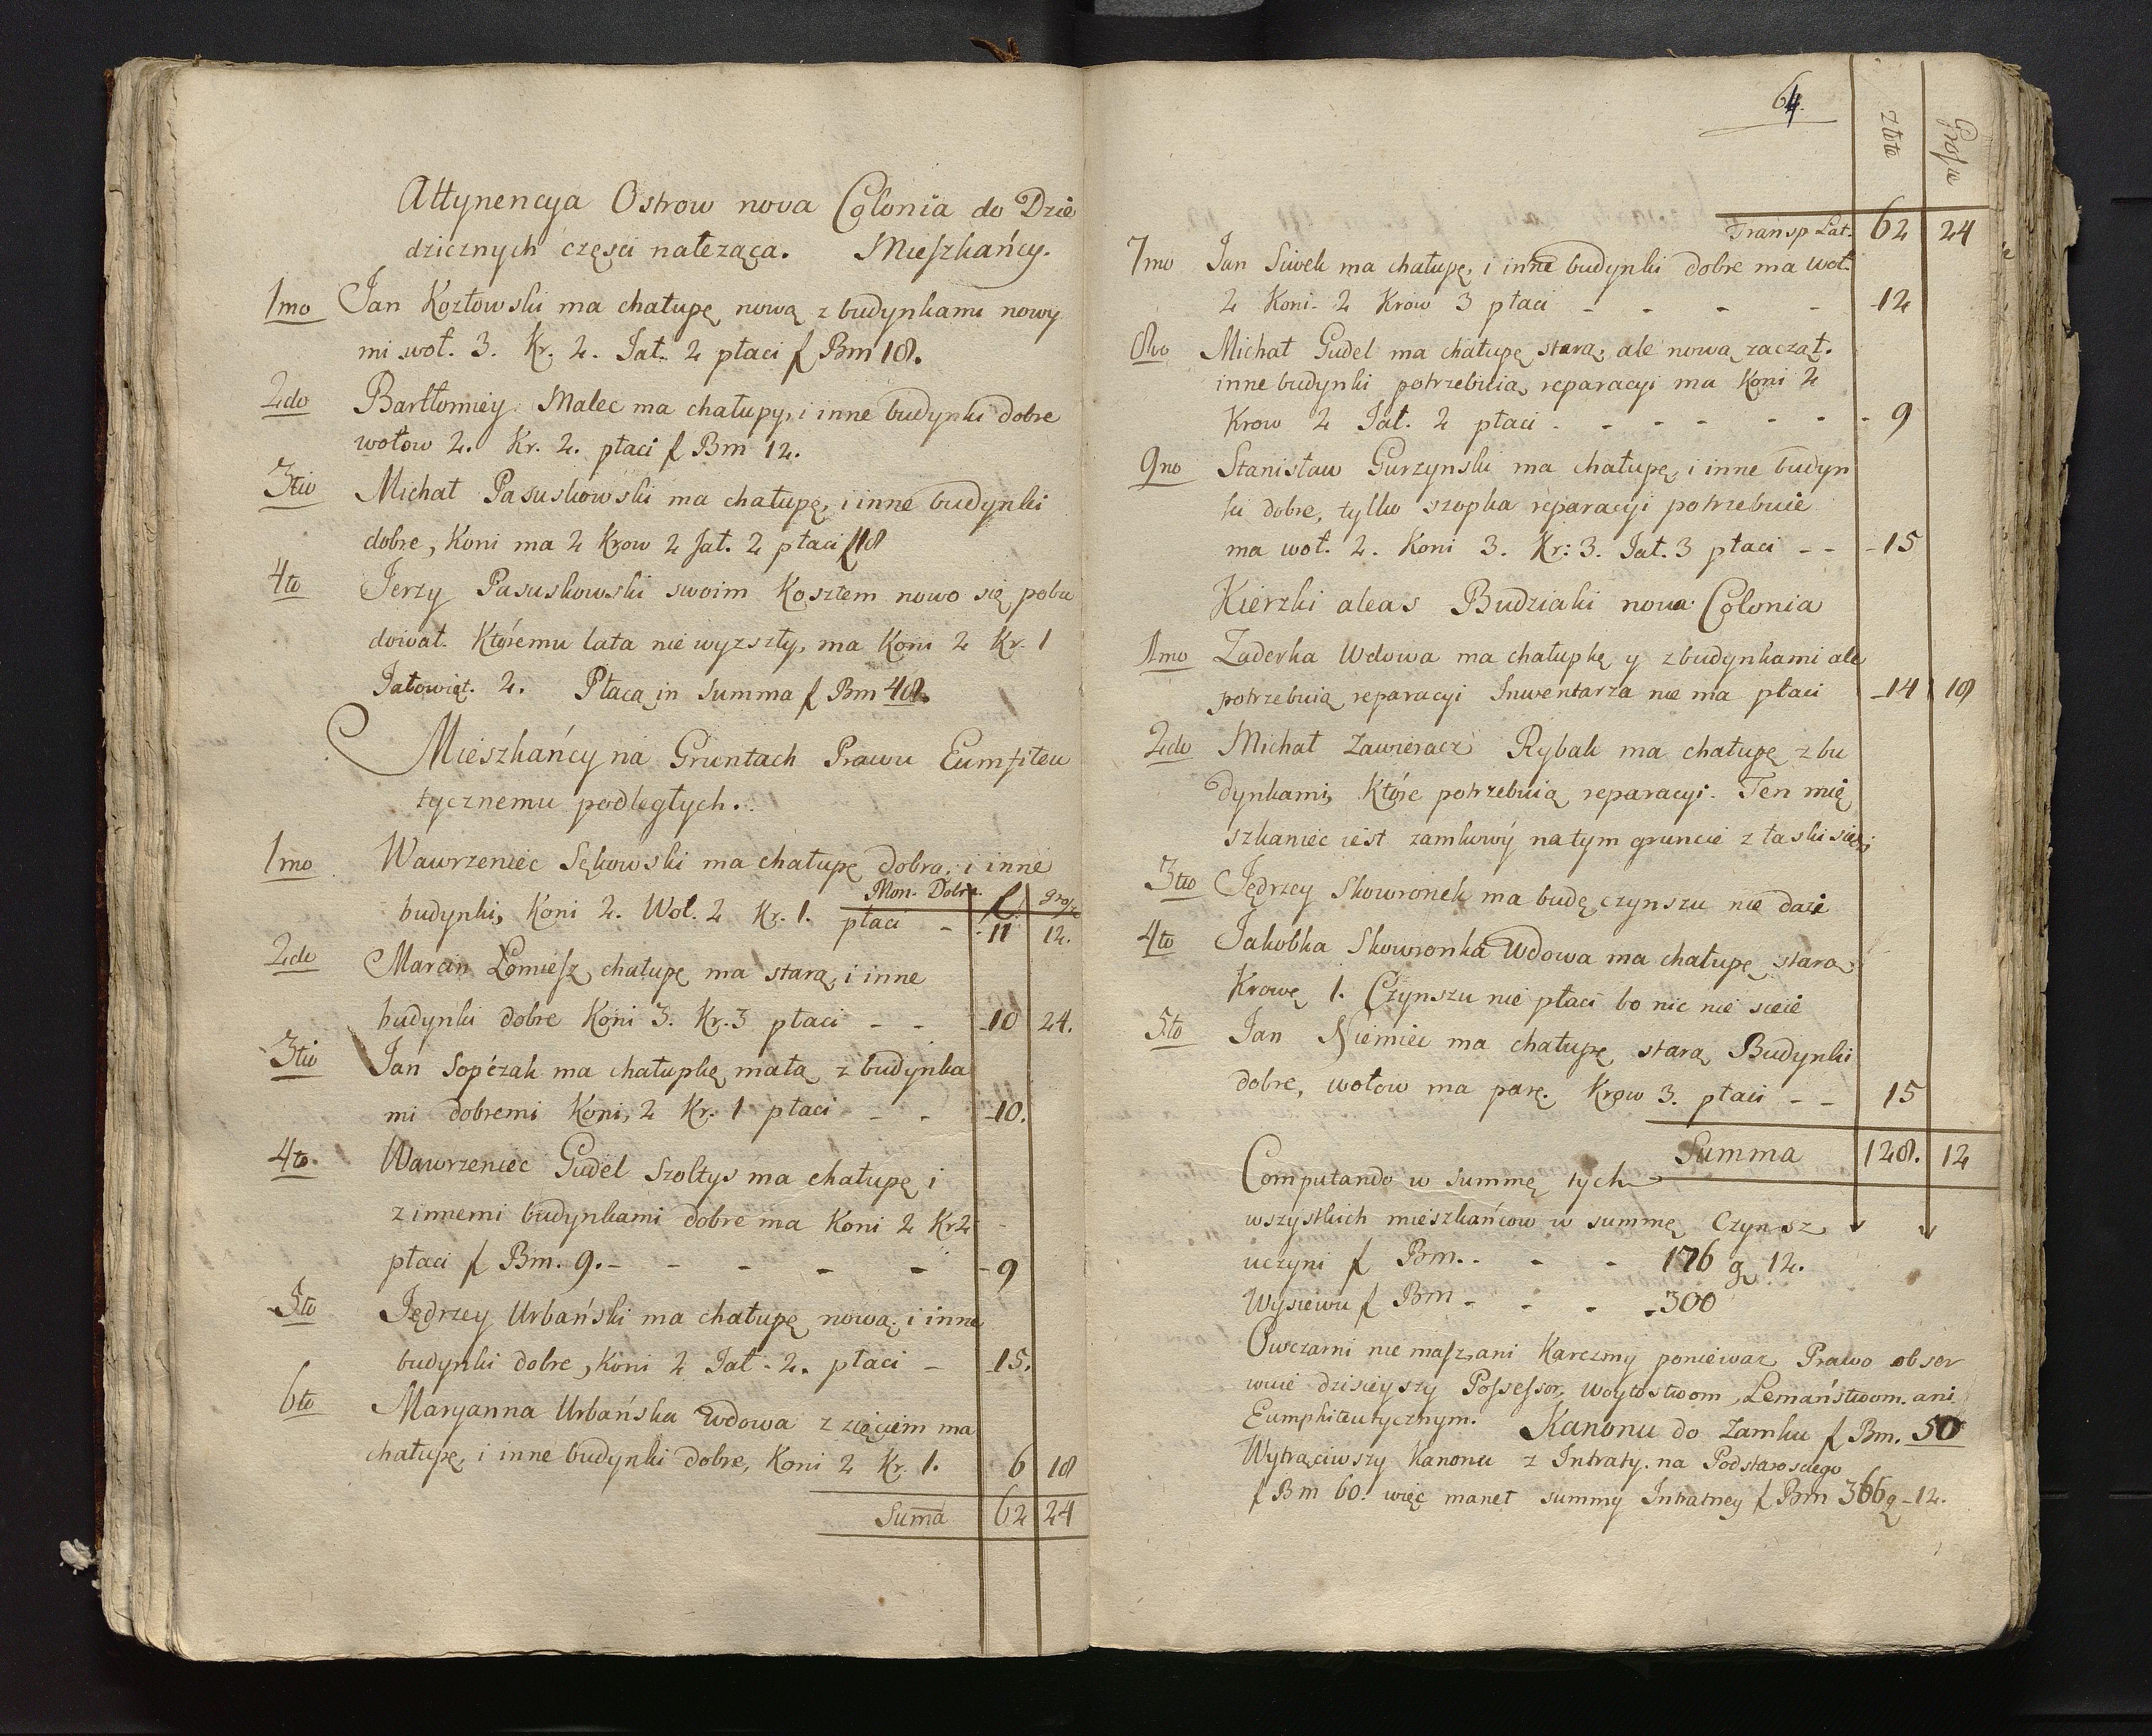 Attynencya Ostrow nova Colonia do Dzie
dzicznych częsci nałeząca. Mieszkańcy.
1mo Jan Kozłowski ma chałupę nową z budynkami nowy
mi woł. 3. Kr. 2. Jał. 2 płaci f Bm 18.
2do Bartłomiey Malec ma chałupy, i inne budynki dobre
wołow 2. Kr. 2. płaci f Bm 12.
3tio Michał Pasuskowski ma chałupę, i inne budynki
dobre, Koni ma 2 Krow 2 Jał. 2 płaci f 18
4to Jerzy Pasuskowski swoim Kosztem nowo się pobu
dował. Któremu lata nie wyszzły, ma Koni 2 Kr. 1
Jałowiąt. 2. Płacą in Summa f Bm 48.
Mieszkańcy na Gruntach Prawu Eumfiteu
tycznemu podległych.
1mo Wawrzeniec Sękowski ma chałupę dobrą, i inne
Mon. Dobra. f. grosz
budynki, Koni 2. Woł. 2 Kr. 1. płaci - 11 12.
2do Marcin Łomiesz chałupę ma starą, i inne
budynki dobre Koni 3. Kr. 3 płaci - - 10 24.
3tio Jan Sopczak ma chałupkę małą z budynka
mi dobremi Koni, 2 Kr. 1 płaci - - 10.
4to. Wawrzeniec Gudel Szołtys ma chałupę i
z innemi budynkami dobre ma Koni 2 Kr 2
płaci f Bm. 9. - - - - - 9
5to Jędrzey Urbański ma chałupę nową, i inne
budynki dobre, Koni 2 Jał. 2. płaci - 15.
6to Maryanna Urbańska Wdowa z zięciem ma
chałupę, i inne budynki dobre, Koni 2 Kr. 1. 6 18
Suma 62 24
64.
Złote Grosze
Transp Lat. 62 24
7mo Jan Siwek ma chałupę, i inne budynki dobre ma woł.
2 Koni. 2 Krow 3 płaci - - - - 12
8vo Michał Gudel ma chałupę starą, ale nową zaczął.
inne budynki potrzebuią reparacyi ma Koni 2
Krow 2 Jał. 2 płaci - - - - - - 9
9no Stanisław Gurzynski ma chałupę, i inne budyn
ki dobre, tylko szopka reparacyi potrzebuie
ma woł. 2. Koni 3. Kr: 3. Jał. 3 płaci - - - 15
Kierzki aleas Budziaki nova Colonia
1mo Zaderka Wdowa ma chałupkę y z budynkami ale
potrzebuią reparacyi Inwentarza nie ma płaci - 14 18
2do Michał Zawieracz Rybak ma chałupę z bu
dynkami, Które potrzebuią reparacyi. Ten mię
szkaniec iest zamkowy na tym gruncie z łaski siedzi
3tio Jędrzey Skowronek ma budę czynszu nie daie
4to Jakobka Skowronka Wdowa ma chałupę starą
Krowę 1. Czynszu nie płaci bo nic nie sieie
5to Jan Niemiec ma chałupę starą Budynki
dobre, wołow ma parę. Krow 3. płaci - - 15
Summa 128. 12
Computando w summę tych
wszystkich mieszkańcow w summę Czynsz
uczyni f Bm. - - 176 g 12.
Wysiewu f Bm - - - 300
Owczarni nie masz, ani Karczmy poniewaz Prawo obser
wuie dzisieyszy Possessor, Woytostwom, Lemaństwom. ani
Eumphiteutycznym. Kanonu do Zamku f Bm. 50
Wytrąciwszy Kanonu z Intraty. na Podstarosciego
f Bm 60. więc manet summy Intratney f Bm 366 g - 12.